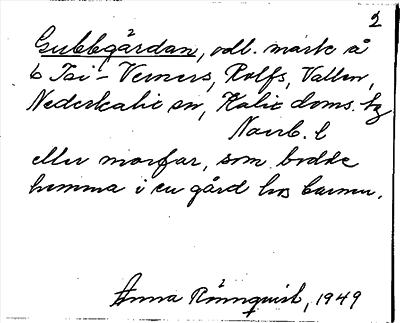 2
Gubbgårdan, odl. mark å
6 Tai - Verners, Rolfs, Vallen,
Nederkalix sn, Kalix doms. hg
Norrb. l
eller morfar, som bodde
hemma i en gård hos barnen.
Anna Rönnquist, 1949